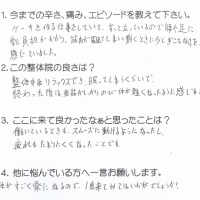 1. 今までの辛さ、痛み、エピソードを教えて下さい。
ケーキを作る仕事をしていて、ずっと立っているので膝や足に
負担がかかり、
感じていました。
2.この整体院の良さは？
整体中はリラックスでき、眠ってしまうくらいで、
終わった後は
3. ここに来て良かったなぁと思ったことは？
働いているときも、スムーズに動けるようになったし、
疲れもたまりにくくなったことです
4. 他に悩んでいる方へ一言お願いします。
体がすごく楽になるので、1度来てみてはいかがでしょうか？